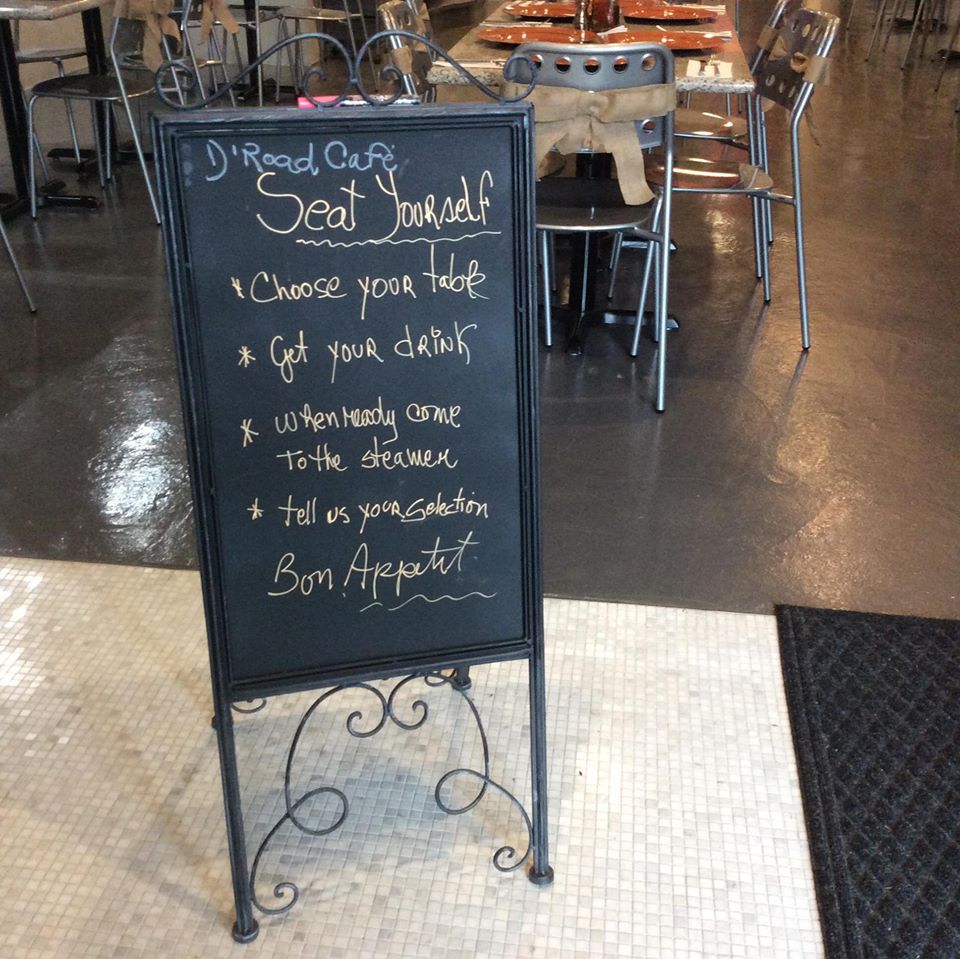 D'Road Café
Seat Yourself
* Choose your table
* Get your drink
* when ready come
to the steamer
* tell us your selection
Bon Appetit